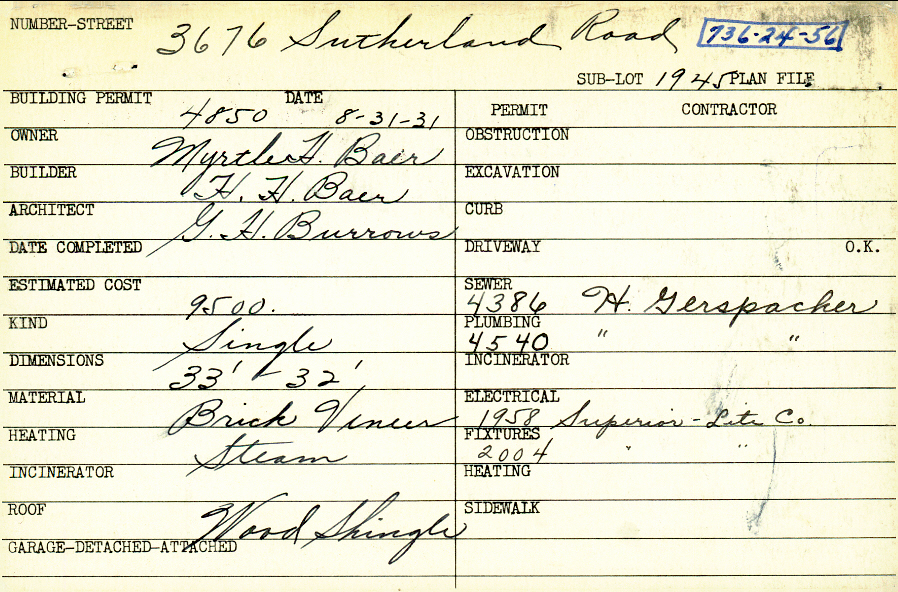 NUMBER-STREET 3676 Sutherland Road 736-24-56
SUB-LOT 1945 PLAN FILE
BUILDING PERMIT 4850 DATE 8-31-31
PERMIT CONTRACTOR
OWNER Myrtle H. Baer
OBSTRUCTION
BUILDER H. H. Baer
EXCAVATION
ARCHITECT G. H. Burrows
CURB
DATE COMPLETED
DRIVEWAY O.K.
ESTIMATED COST 9500.
SEWER 4386 H. Gerspacher
KIND Single
PLUMBING 4540 " "
DIMENSIONS 33' - 32'
INCINERATOR
MATERIAL Brick Vineer
ELECTRICAL 1958 Superior-Lite Co.
HEATING Steam
FIXTURES 2004 " "
INCINERATOR
HEATING
ROOF Wood Shingle
SIDEWALK
GARAGE-DETACHED-ATTACHED